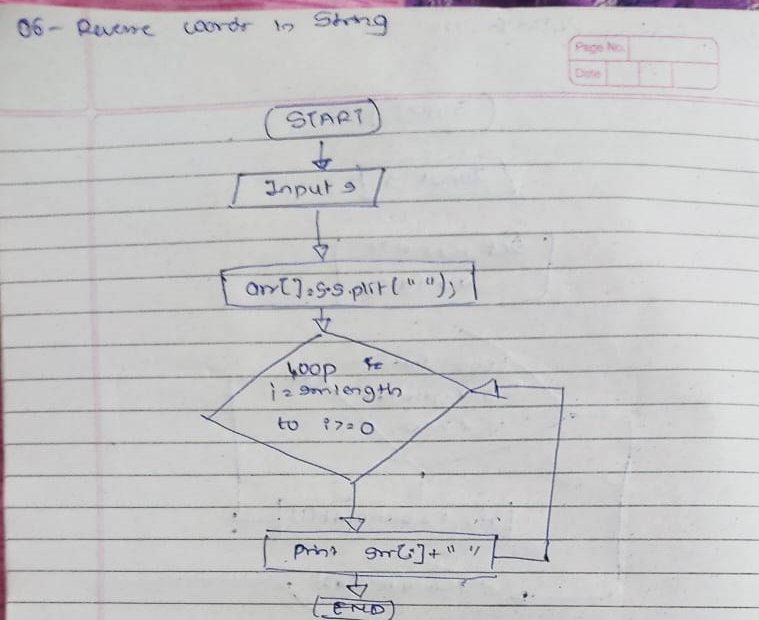 06- Reverse words in String
Page No.
Date
START
Input s
arr[]=s.split(" ");
Loop
i=arr.length
to i>=0
print arr[i]+" "
END